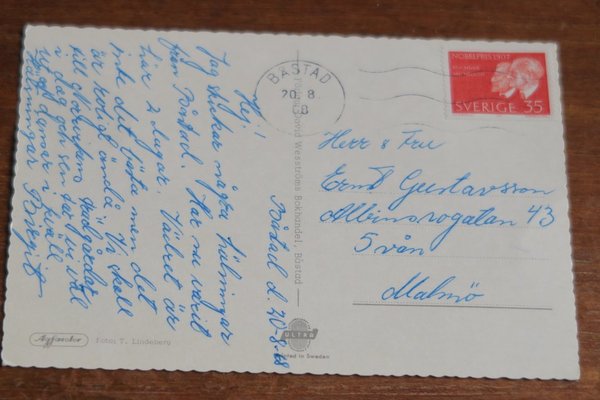 Båstad d. 20-8-68
Hej!
Jag skickar några hälsningar
från Båstad. Har nu varit
här 2 dagar. Vädret är
inte det bästa men det
är roligt ändå. Vi skall
till
i dag och sen ser vi väl
i kväll
Hälsningar Birgit
NOBELPRIS 1907
SVERIGE 35
BÅSTAD
20.8
68
Herr & Fru
Ernst Gustavsson
Albinsrogatan 43
5 vån
Malmö
Wesströms Bokhandel, Båstad
ULTRA
Printed in Sweden
Agfacolor
Foto: T. Lindeberg